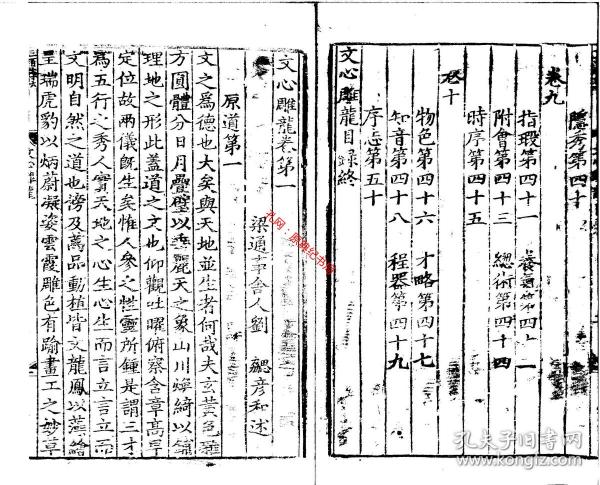 隱秀第四十
卷九
指瑕第四十一 養氣第四十二
附會第四十三 總術第四十四
時序第四十五
卷十
物色第四十六 才略第四十七
知音第四十八 程器第四十九
序志第五十
文心雕龍目録終
文心雕龍卷第一
梁通事舍人劉 勰彦和述
原道第一
文之爲德也大矣與天地並生者何哉夫玄黄色雜
方圓體分日月疊璧以垂麗天之象山川煥綺以鋪
理地之形此盖道之文也仰觀吐曜俯察含章高卑
定位故兩儀既生矣惟人參之性靈所鍾是謂三才
爲五行之秀人實天地之心生心生而言立言立而
文明自然之道也傍及萬品動植皆文龍鳳以藻繪
呈瑞虎豹以炳蔚凝姿雲霞雕色有踰畫工之妙草
文心雕龍
孔网·原雅纪书馆
孔夫子旧书网
www.kongfz.com